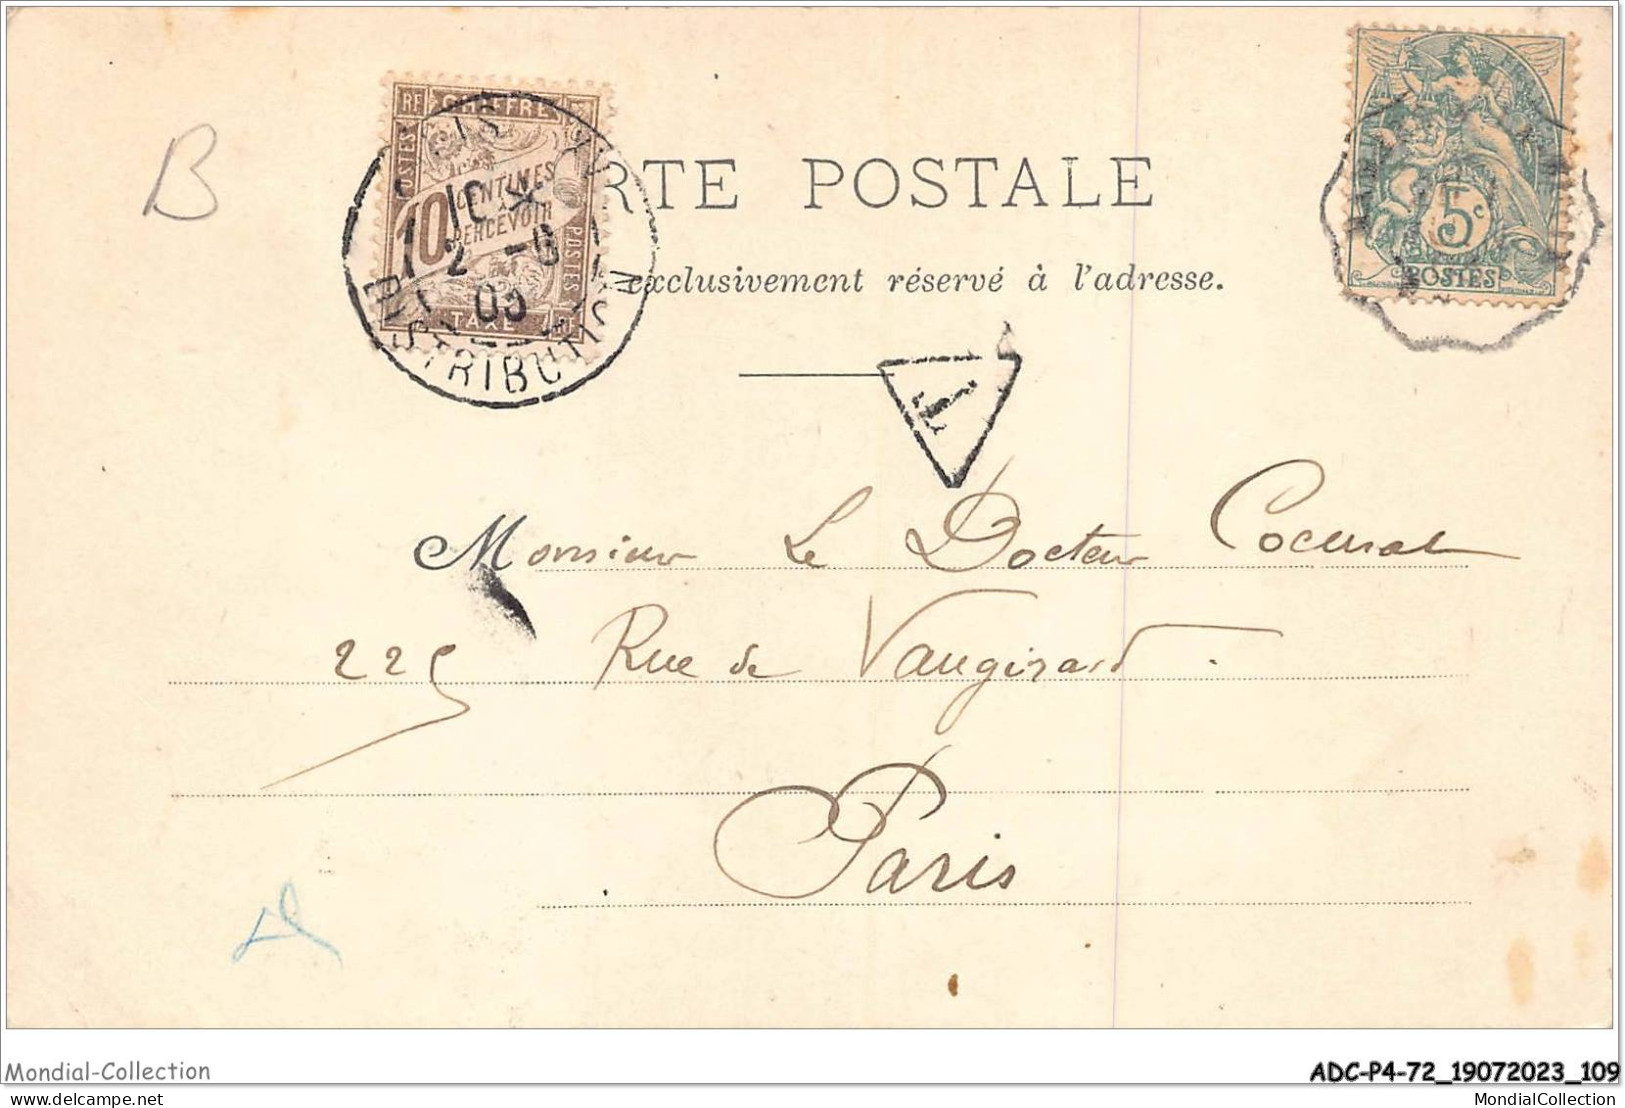 B
RF CHIFFRE
POSTES
10 CENTIMES
À
PERCEVOIR
POSTES
TAXE
10 *
2 -6
03
DISTRIBUTION
5c
POSTES
RTE POSTALE
exclusivement réservé à l'adresse.
T
Monsieur Le Docteur
225 Rue de Vaugirard.
Paris
Mondial-Collection
ADC-P4-72_19072023_109
delcampe.net
MondialCollection